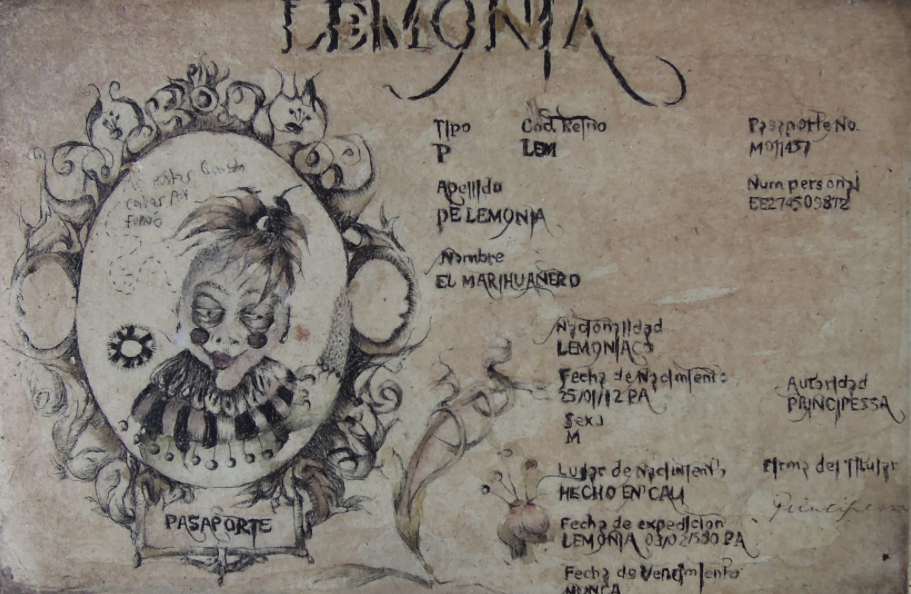 LEMONIA
Tipo
P
Cod. Reino
LEM
Pasaporte No.
M011457
Apellido
DE LEMONIA
Num personal
EE274509872
Nombre
EL MARIHUANERO
Nacionalidad
LEMONIACO
Fecha de Nacimiento
25/01/12 PA
Sexo
M
Autoridad
PRINCIPESSA
Lugar de Nacimiento
HECHO EN CALI
Firma del Titular
Principessa
Fecha de expedicion
LEMONIA 03/02/590 PA
Fecha de Vencimiento
NUNCA
PASAPORTE